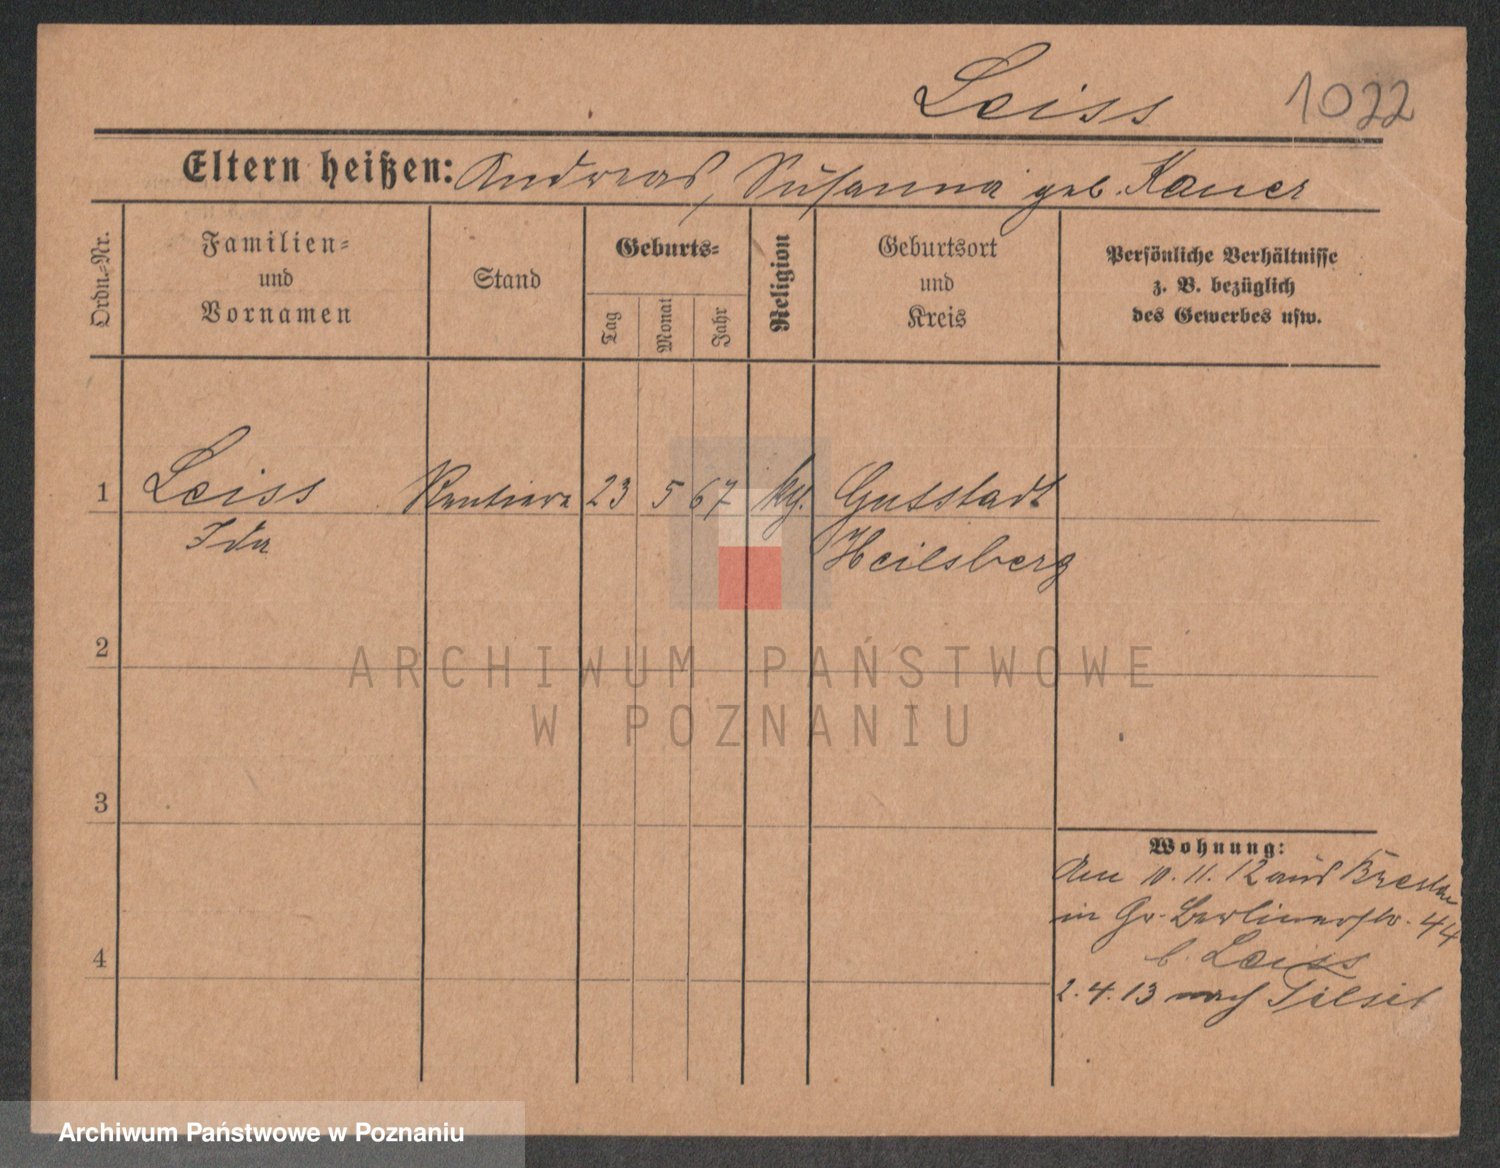 Leiss 1022
Eltern heißen: Andreas, Susanna geb. Kauer
Ordn.-Nr.
Familien-
und
Vornamen
Stand
Geburts-
Tag
Monat
Jahr
Religion
Geburtsort
und
Kreis
Persönliche Verhältnisse
z. B. bezüglich
des Gewerbes usw.
1 Leiss Rentiere 23 5 67 kg. Gutstadt
Ida Heilsberg
2
ARCHIWUM PAŃSTWOWE
W POZNANIU
3
Wohnung:
Am 10.11.12 aus Breslau
in Gr. Berlinerstr. 44
b. Leiss
4
2.4.13 nach Tilsit
Archiwum Państwowe w Poznaniu